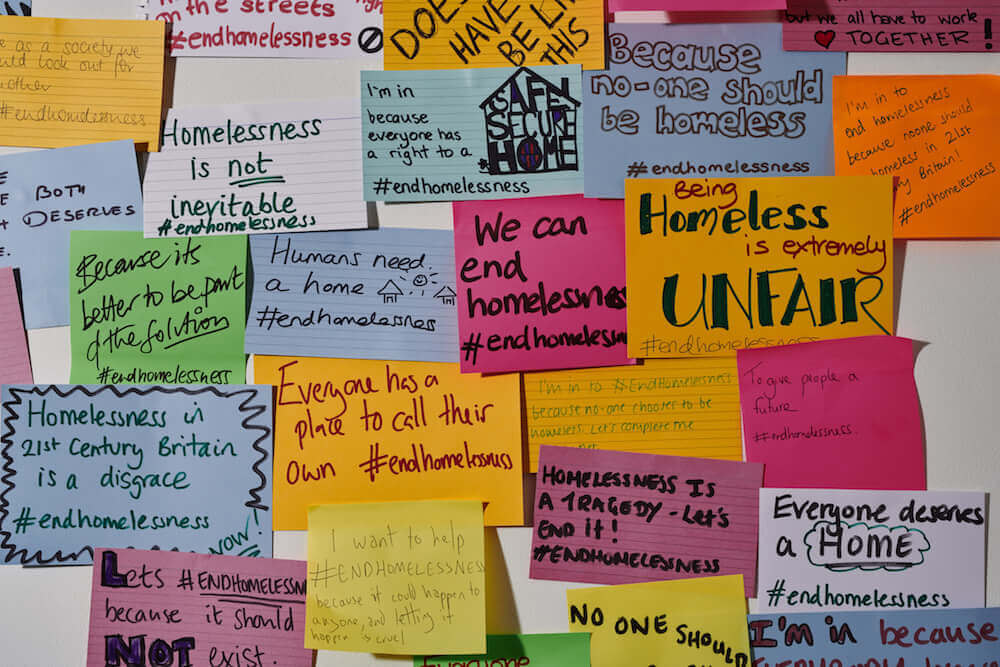 on the streets
#endhomelessness
DOES
HAVE
BE LI
THIS
but we all have to work
TOGETHER!
as a society we
look out for
#endhomelessness
I'm in
because
everyone has
a right to a
SAFE
SECURE
HOME
#endhomelessness
Because
no-one should
be homeless
#endhomelessness
I'm in to
end homelessness
because noone should
homeless in 21st
Britain!
#endhomelessness
Homelessness
is not
inevitable
#endhomelessness
BOTH
DESERVES
Because its
better to be part
of the solution
#endhomelessness
Humans need
a home
#endhomelessness
We can
end
homelessness
#endhomelessn
Being
Homeless
is extremely
UNFAIR
#endhomelessness
Homelessness in
21st Century Britain
is a disgrace
#endhomelessness
now!
Everyone has a
place to call their
own #endhomelessness
I'm in to #EndHomelessness
because no-one chooses to be
homeless. Let's complete the
To give people a
future
#endhomelessness.
HOMELESSNESS IS
A TRAGEDY - LET'S
END IT!
#ENDHOMELESSNESS
Everyone deserves
a HOME
#endhomelessness
Lets #ENDHOMELESSN
because it should
NOT exist.
I want to help
#ENDHOMELESSNESS
because it could happen to
anyone, and letting it
happen is cruel
Everyone
NO ONE SHOULD
I'm in because